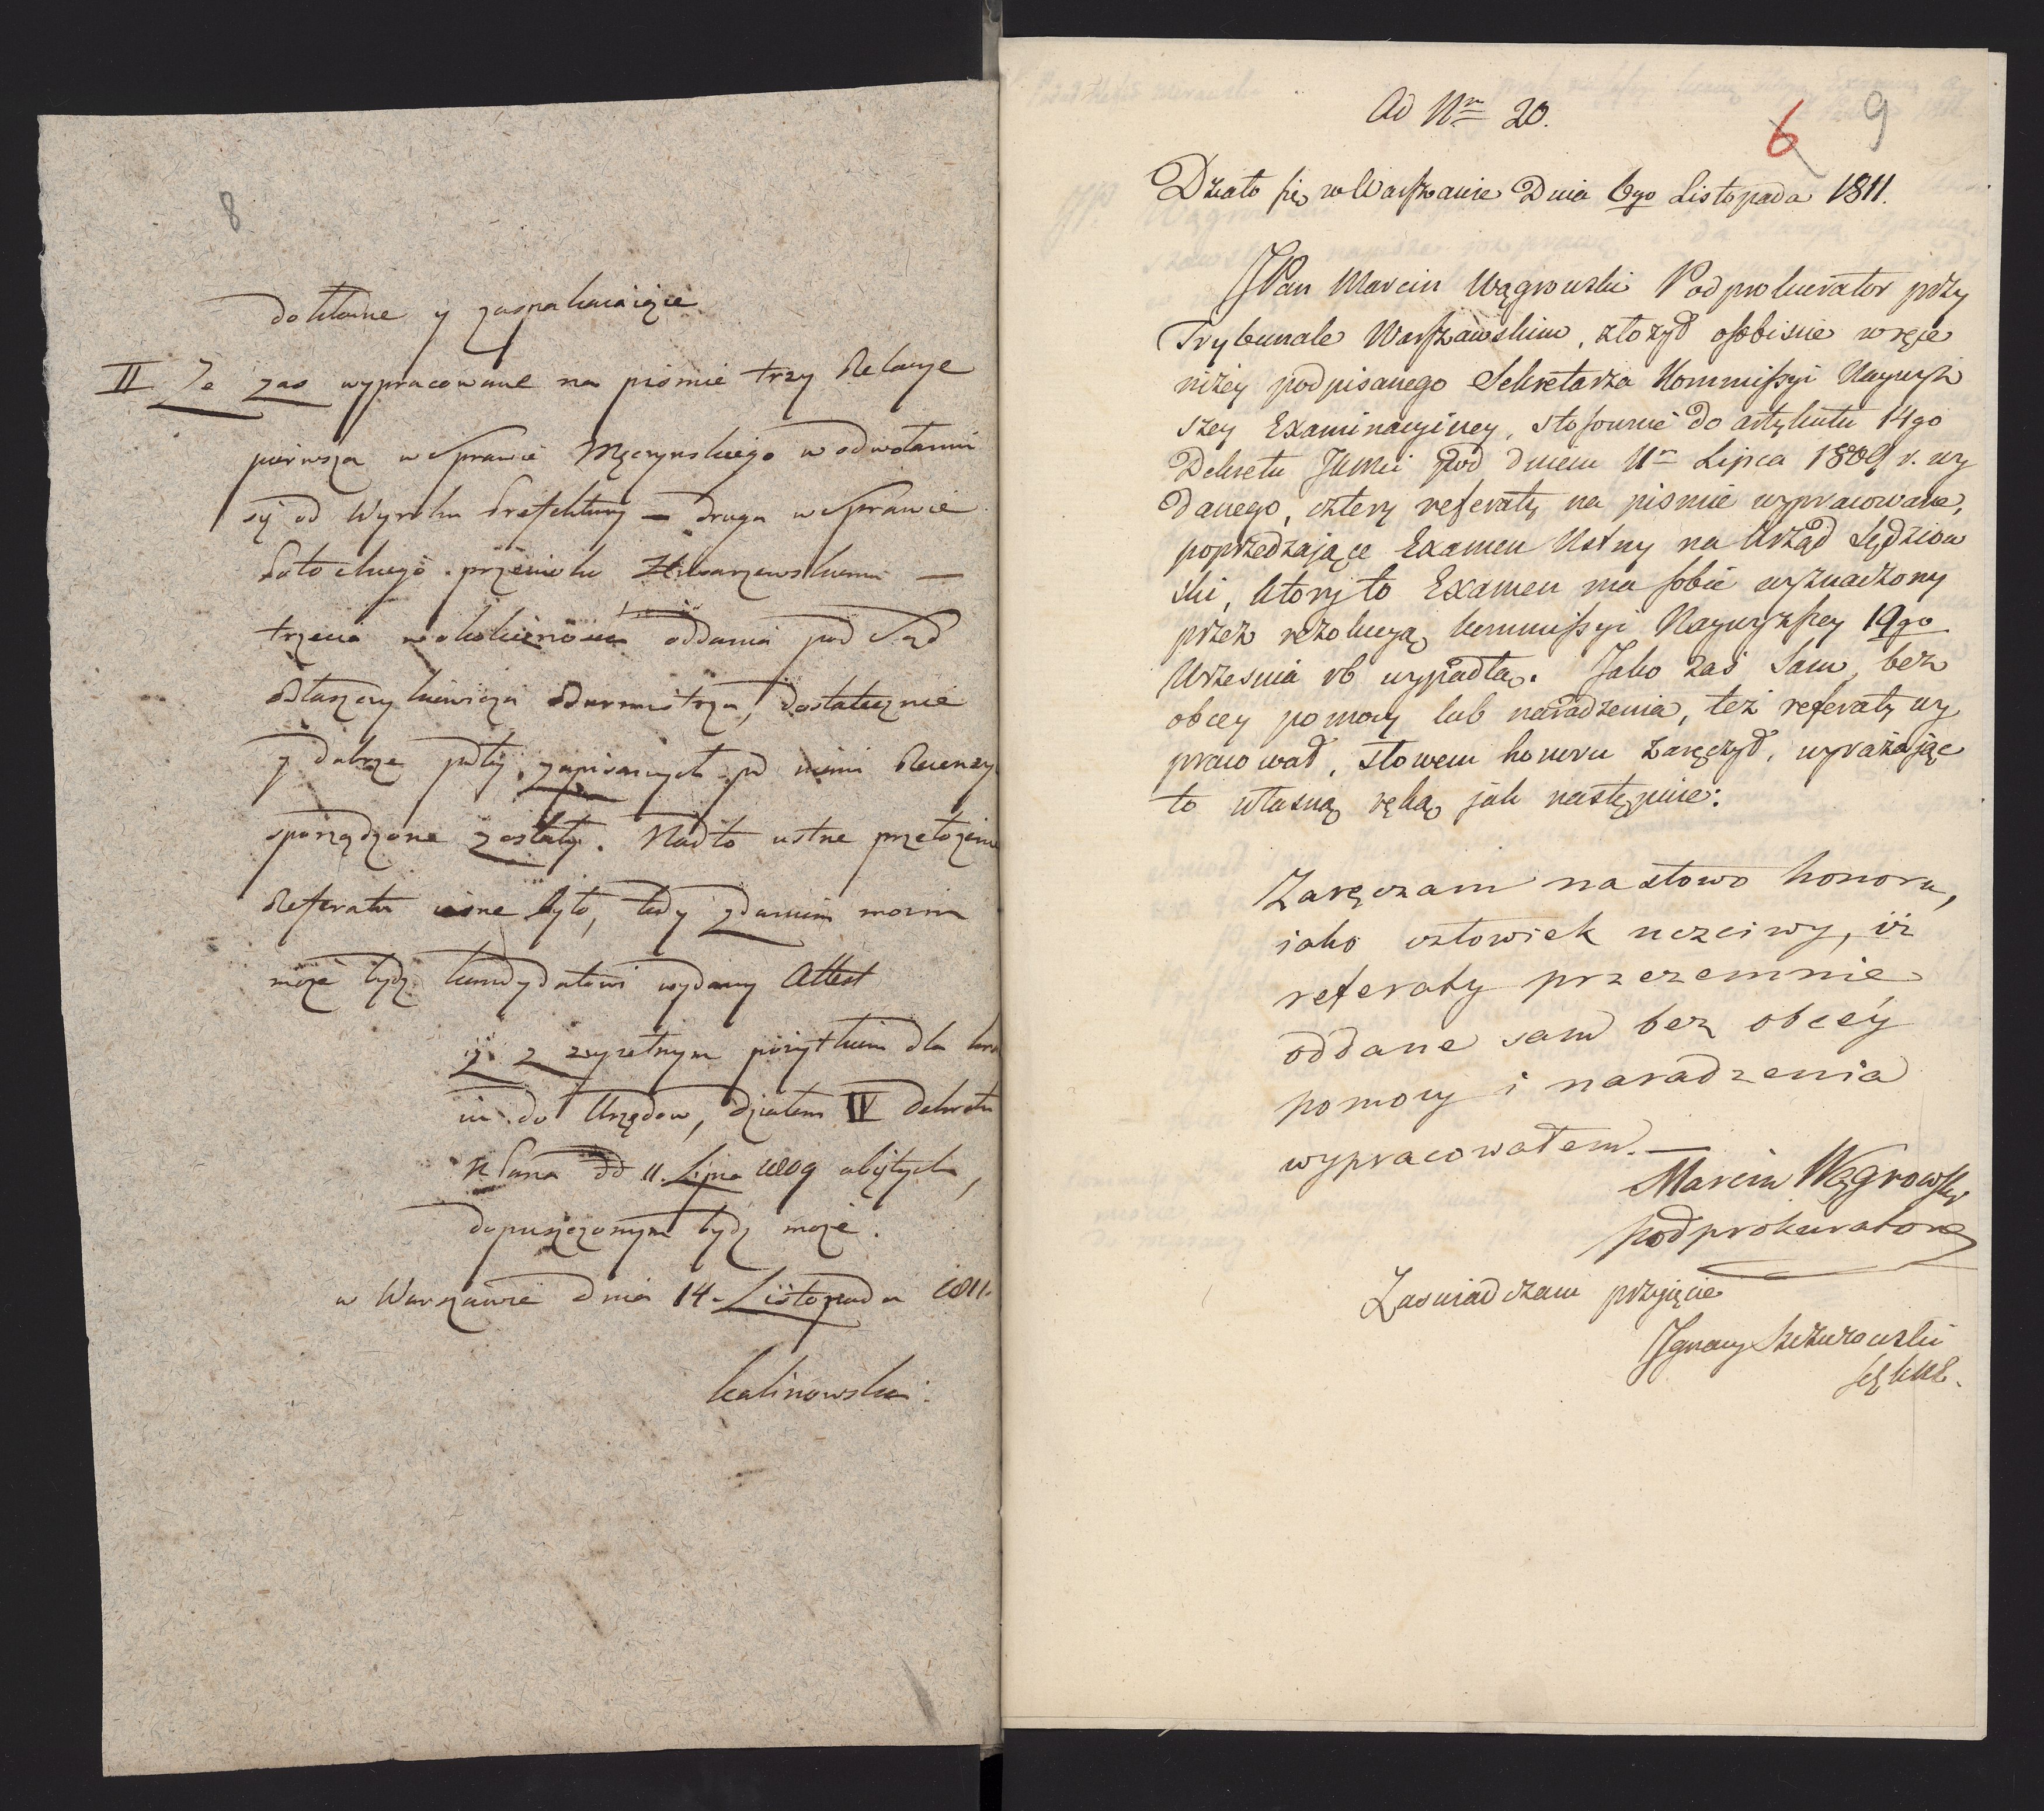 8
dokładne y zaspakaiaiące
II Że zas wypracowane na pismie trzy Relacye
pierwsza w Sprawie Męcynskiego w odwołaniu
się od Wyroku Prefektury – druga w Sprawie
Potockiego przeciwko –
trzecia w okoliczności oddania pod Sąd
Burmistrza, dostatecznie
y dobrze podług zapisanych pod niemi Recenzyi
sporządzone zostały. Nadto ustne przełożenie
Referatu iasne było, tedy zdaniem moim
może bydz kandydatowi wydany Attest
iż z zupełnym pożytkiem dla kra
iu do Urzędow, działem IV Dekretu
K Pana dd 11. Lipca 1809 obiętych,
dopuszczonym bydz może.
w Warszawie dnia 14. Listopada 1811.
Kalinowski.
Ad Nrm 20.
6 9
Działo się w Warszawie Dnia 6go Listopada 1811.
JPan Marcin Wągrowski Podprokurator przy
Trybunale Warszawskim, złożył osobiscie w ręce
niżey podpisanego Sekretarza Kommissyi Naywyż
szey Examinacyiney, stosownie do artykułu 14go
Dekretu JKMci pod dniem 11m Lipca 1809 r. wy
danego, cztery referaty na pismie wypracowane,
poprzedzające Examen Ustny na Urząd Sędziow
ski, ktory to Examen ma sobie wyznaczony
przez rezolucyą kommissyi Naywyzszey 19go
Wrzesnia rb wypadłą. Jako zaś Sam, bez
obcey pomocy lub naradzenia, też referaty wy
pracował, słowem honoru zaręczył, wyrażając
to własną ręką jak następuie:
Zaręczam na słowo honoru,
iako człowiek uczciwy, iż
referaty przezemnie
oddane sam bez obcéy
pomocy i naradzenia
wypracowałem. —
Marcin Wągrowski
podprokurator
Zaswiadczam przyięcie
Ignacy